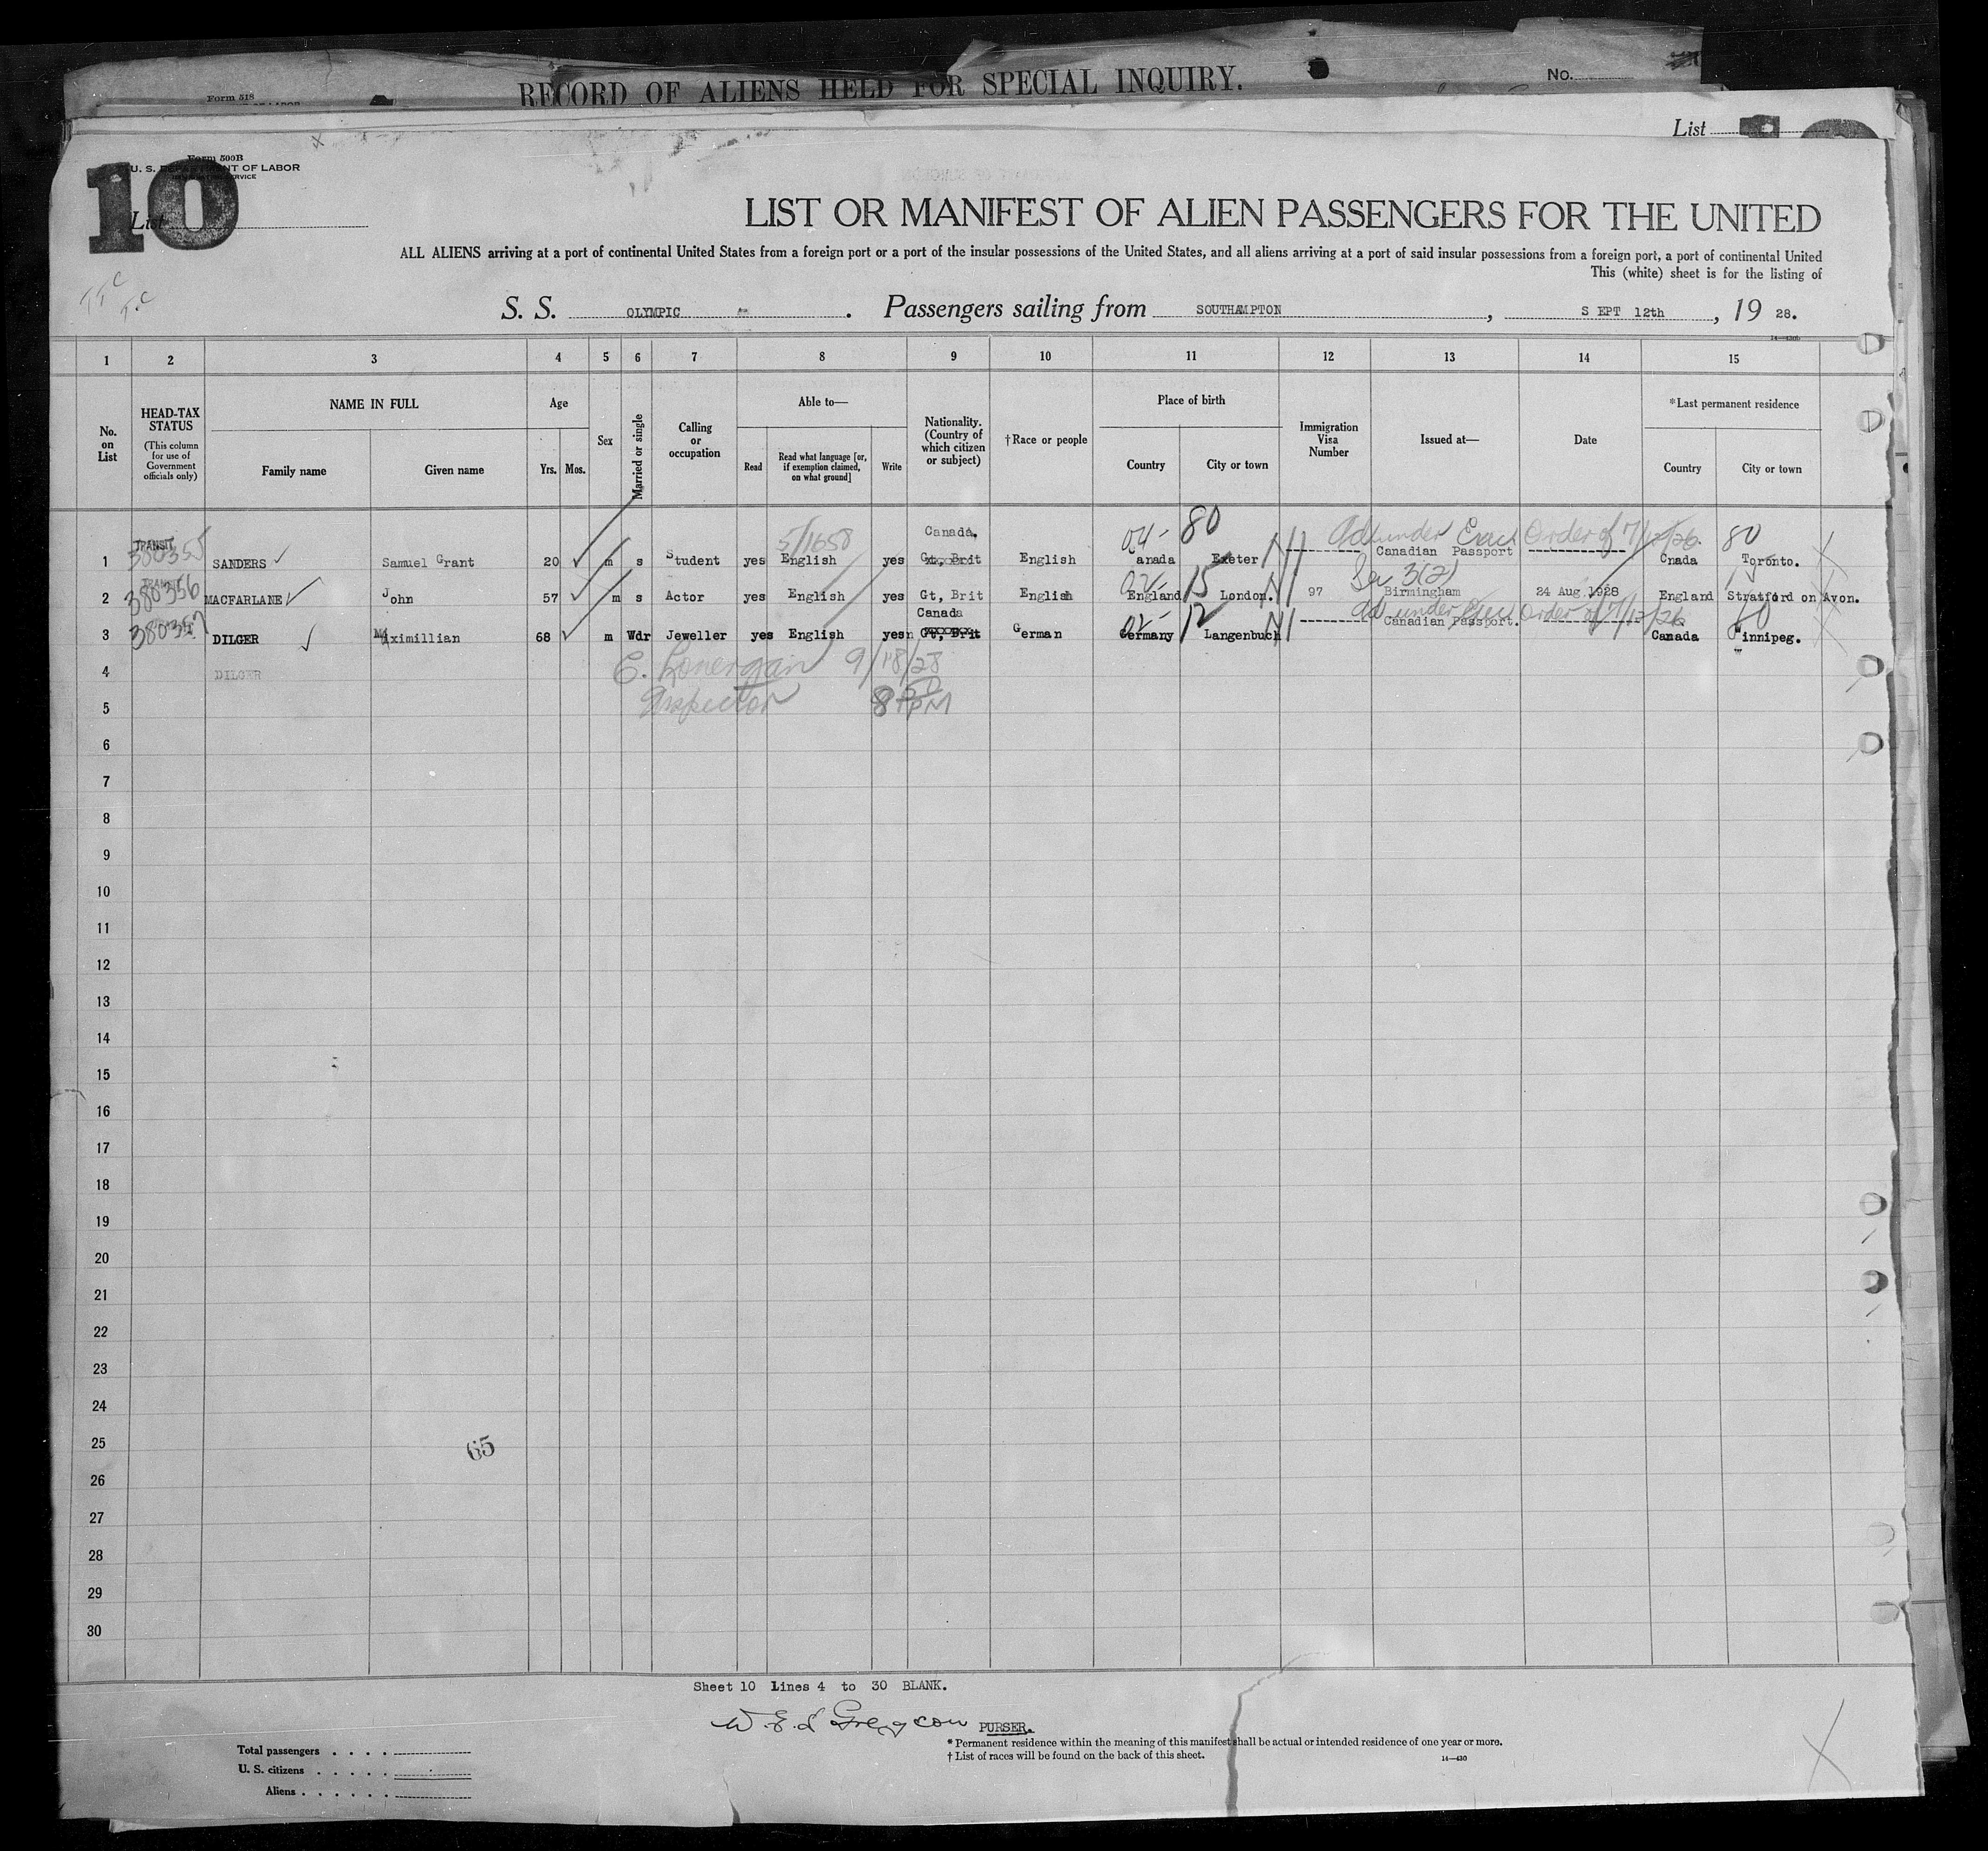 Form 518
RECORD OF ALIENS HELD FOR SPECIAL INQUIRY.
No.
List
Form 500B
U. S. DEPARTMENT OF LABOR
10
List
LIST OR MANIFEST OF ALIEN PASSENGERS FOR THE UNITED
ALL ALIENS arriving at a port of continental United States from a foreign port or a port of the insular possessions of the United States, and all aliens arriving at a port of said insular possessions from a foreign port, a port of continental United
This (white) sheet is for the listing of
S. S. OLYMPIC . Passengers sailing from SOUTHAMPTON , S EPT 12th , 19 28.
1 2 3 4 5 6 7 8 9 10 11 12 13 14 15
No. on List
HEAD-TAX STATUS (This column for use of Government officials only)
NAME IN FULL Family name Given name
Age Yrs. Mos.
Sex
Married or single
Calling or occupation
Able to— Read Read what language [or, if exemption claimed, on what ground] Write
Nationality. (Country of which citizen or subject)
†Race or people
Place of birth Country City or town
Immigration Visa Number
Issued at—
Date
*Last permanent residence Country City or town
5/1658 Canada. 04- 80 Order of 80
1 TRANSIT 380355 SANDERS Samuel Grant 20 m s Student yes English yes Gt, Brit English anada Exeter Canadian Passport Cnada Toronto.
02- 15 Sec 3(2)
2 380356 MACFARLANE John 57 m s Actor yes English yes Gt, Brit English England London. 97 Birmingham 24 Aug 1928 England Stratford on Avon.
Canada 02- 12 ad under Order of
3 380357 DILGER Miximillian 68 m Wdr Jeweller yes English yes Gt, Brit German Germany Langenbuch Canadian Passport. Canada Winnipeg.
4 DILGER E. Lonergan 9/18/28
5 Inspector 8 PM
6
7
8
9
10
11
12
13
14
15
16
17
18
19
20
21
22
23
24
25 65
26
27
28
29
30
Sheet 10 Lines 4 to 30 BLANK.
PURSER.
Total passengers
U. S. citizens
Aliens
* Permanent residence within the meaning of this manifest shall be actual or intended residence of one year or more.
† List of races will be found on the back of this sheet.
14—430